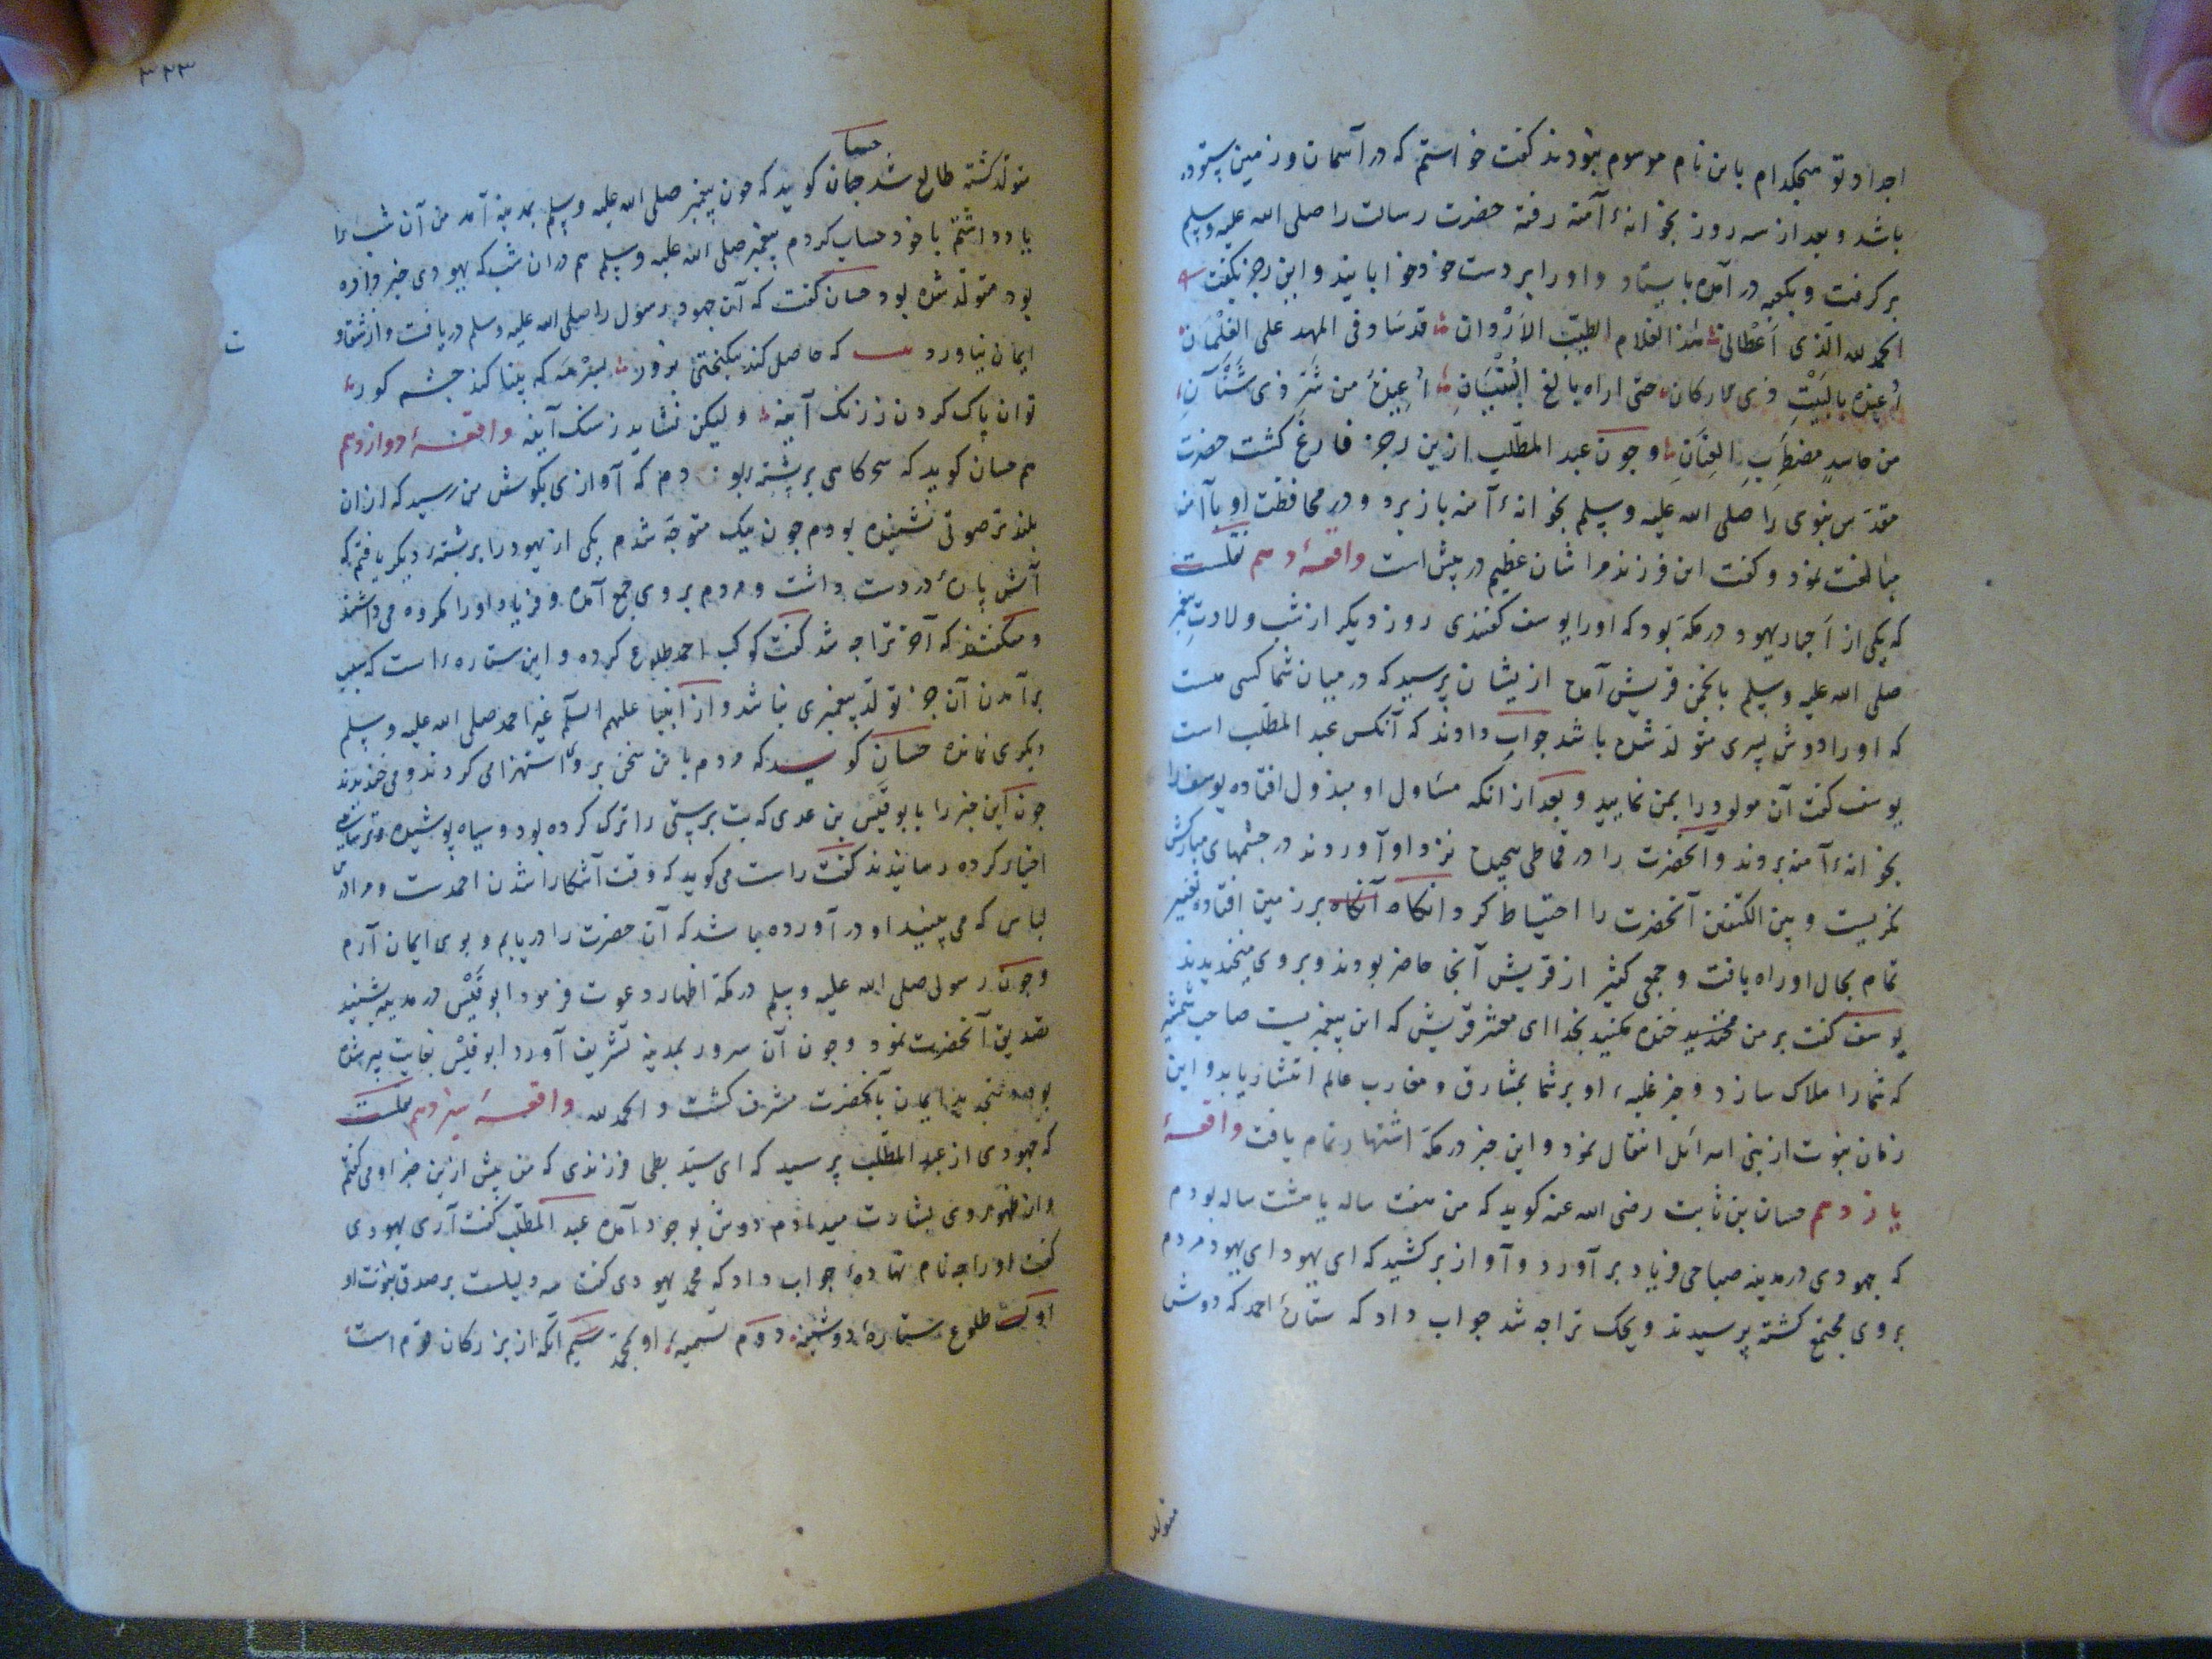 اجداد تو هیچکدام باین نام موسوم نبودند کفت خواستم که در آسمان و زمین ستوده
باشد و بعد از سه روز بخوانهٔ آمنه رفته حضرت رسالت را صلی الله علیه وسلم
برکرفت و بکعبه درآمده بایستاد و اورا بر دست خود خوابانید و این رجز بکفت
الحمد لله الّذی اَعْطانی هٰذا الغلام الطیّب الاَرْدان قد ساد فی المهد علی الغِلْمان
اُعیذه بالبَیْتِ ذی الارکان حتّی اراه بالغ البُنْیَانِ اُعیذهُ من شَرّ ذی شَنَآنٍ
من حاسدٍ مضطَرِبِ العِنَانِ و جون عبد المطّلب ازین رجز فارغ کشت حضرت
مقدّس نبوی را صلی الله علیه وسلم بخوانهٔ آمنه بازبرد و در محافظت او بآمنه
مبالغت نمود و کفت این فرزند مرا شان عظیم در پیش است واقعهٔ دهم نقلست
که یکی از اَحبار یهود در مکه بود که اورا یوسف کفتندی روز دیکر از شب ولادتِ پیغمبر
صلی الله علیه وسلم بانجمن قریش آمده ازیشان پرسید که در میان شما کسی هست
که اورا دوش پسری متولّد شده باشد جواب دادند که آنکس عبد المطّلب است
یوسف کفت آن مولود را بمن نمایید و بعد از انکه مسَاول او مبذول افتاده یوسف را
بخوانهٔ آمنه بردند و آنحضرت را در قماطی پیچیده نزد او آوردند در چشمهای مبارکش
نکریست و بین الکتفین آنحضرت را احتیاط کرد وانکاه آنکاه بر زمین افتاده تغییر
تمام بحال او راه یافت و جمعی کثیر از قریش آنجا حاضر بودند و بروی میخندیدند
یوسف کفت بر من مخندید خنده مکنید بخدا ای معشر قریش که این پیغمبریست صاحب شمشیر
که شمارا هلاک سازد و خبر غلبهٔ او بر شما بمشارق و مغارب عالم انتشار یابد و این
زمان نبوت از بنی اسرائل انتقال نمود و این خبر در مکه اشتهار تمام یافت واقعهٔ
یازدهم حسان بن ثابت رضی الله عنه کوید که من هفت ساله یا هشت ساله بودم
که جهودی در مدینه صباحی فریاد برآورد و آواز برکشید که ای یهود ای یهود مردم
بروی مجتمع کشته پرسیدند ویحک تراجه شد جواب داد که ستارهٔ احمد که دوش
متولد
٣٢٣
حسان
متولّد کشته طالع شد حسان کوید که جون پیغمبر صلی الله علیه وسلم بمدینه آمد من آن شب را
یاد داشتم با خود حساب کردم پیغمبر صلی الله علیه وسلم هم دران شب که یهودی خبر داده
بود متولّد شده بود حسان کفت که آن جهود رسول را صلی الله علیه وسلم دریافت و از شقاو
ت
ایمان نیاورد که حاصل کند نیکبختی بزور بسرْمَه که بینا کند جشم کور
توان پاک کردن ز زنک آینه ولیکن نشاید ز سنک آینه واقعهٔ دوازدهم
هم حسان کوید که سحرکاهی بر پشته بودم که آوازی بکوش من رسید که ازان
بلندتر صوتی نشنیده بودم جون نیک متوجّه شدم یکی از یهود را بر پشتهٔ دیکر یافتم که
آتش پارهٔ در دست داشت و مردم بروی جمع آمده و فریاد اورا مکروه می داشتند
و میکفتند که آخر تراجه شد کفت کوکب احمد طلوع کرده و این ستارهٔ است که سبب
برآمدن آن جز تولّد پیغمبری نباشد و از انبیا علیهم السلم غیر احمد صلی الله علیه وسلم
دیکری نمانده حسان کوید که مردم باین سخن بروی استهزا می کردند و می خندیدند
جون این خبر را بابو قَیْس بن عدی که بت پرستی را ترک کرده بود و سیاه پوشیده و ترسایی
اختیار کرده رسانیدند کفت راست می کوید که وقت آشکارا شدن احمدست و مرا درین
لباس که می بینید او درآورده باشد که آن حضرت را دریابم و بوی ایمان آرم
و جون رسول صلی الله علیه وسلم در مکه اظهار دعوت فرمود ابو قَیْس در مدینه شنید
تصدیق آنحضرت نمود و جون آن سرور بمدینه تشریف آورد ابو قیْس بغایت پیر شده
بود بتجدید ایمان بآنحضرت مشرف کشت و الحمد لله واقعهٔ سیزدهم نقلست
که جهودی از عبد المطّلب پرسید که ای سیّد بطحا فرزندی که من پیش ازین خبر او می کفتم
و از ظهور وی بشارت میدادم دوش بوجود آمده عبد المطّلب کفت آری یهودی
کفت اورا جه نام نهادهٔ جواب داد که محمد یهودی کفت سه دلیلست بر صدق نبوّت او
اوّل طلوع ستارهٔ دوشینه دوّم تسمیهٔ او بمحمّد سیم آنکه از بزرکان قوم است